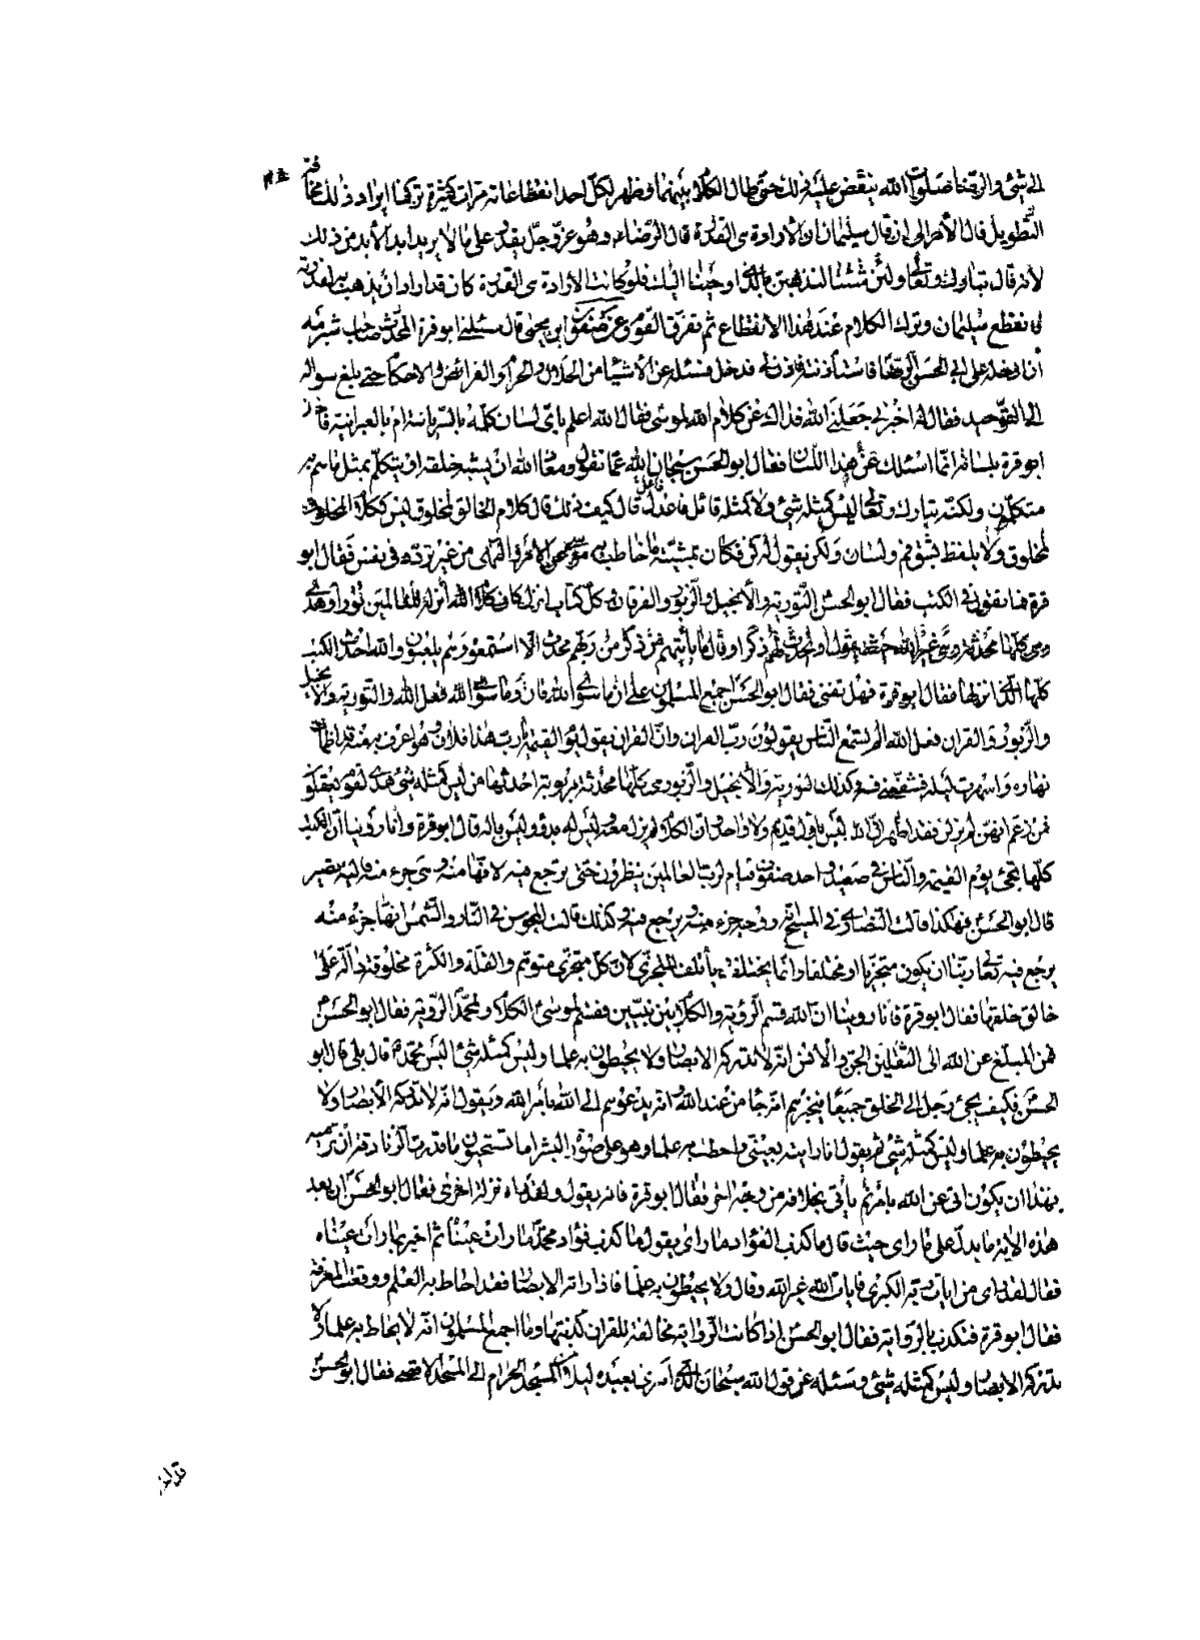 الى شئ والرضا صلوات الله عليه ينقض عليه ذلك حتى طال الكلام بينهما وظهر لكل احد انقطاعاته مرات كثيرة تركنا ايراد ذلك مخافة
التطويل فال الأمر الى ان قال سليمان ان الارادة هى القدرة قال الرضا ع وهو عز وجل يقدر على ما لا يريد ابدا لابد من ذلك
لانه قال تبارك وتعالى ولئن شئنا لنذهبن بالذى اوحينا اليك فلو كانت الارادة هى القدرة كان قد اراد ان يذهب به لقدرته
فانقطع سليمان وترك الكلام عند هذا الانقطاع ثم تفرق القوم وعن صفوان ابن يحيى قال سئلنى ابو قرة المحدث صاحب شبرمه
أن ادخله على ابى الحسن الرضا فاستأذنته فاذن له فدخل فسئله عن الأشياء من الحلال والحرام والفرائض والاحكام حتى بلغ سواله
الى التوحيد فقال له اخبرنى جعلنى الله فداك عن كلام الله لموسى فقال الله اعلم باى لسان كلمه بالسريانية ام بالعبرانية فاخذ
ابو قرة بلسانه فقال انما اسئلك عن هذا اللسان فقال ابو الحسن سبحان الله عما تقول ومعاذ الله ان يشبه خلقه او يتكلم بمثل ما هم به
متكلمون ولكنه تبارك وتعالى ليس كمثله شئ ولا كمثله قائل فاعل قال كيف ذلك قال كلام الخالق لمخلوق ليس ككلام المخلوق
لمخلوق ولا يلفظ بشق فم ولسان ولكن يقول له كن فكان بمشيته ما خاطب به موسى من الامر والنهى من غير تردد فى نفس فقال ابو
قرة فما تقول فى الكتب فقال ابو الحسن التورية والأنجيل والزبور والفرقان وكل كتاب انزل كان كلام الله أنزله للعالمين نورا وهدى
وهى كلها محدثة وهى غير الله حيث يقول او يحدث لهم ذكرا وقال ما يأتيهم من ذكر من ربهم محدث الا استمعوه وهم يلعبون والله احدث الكتب
كلها التى انزلها فقال ابو قرة فهل تفنى فقال ابو الحسن اجمع المسلمون على ان ما سوى الله فان وما سوى الله فعل الله والتورية والانجيل
والزبور والقران فعل الله الم تسمع الناس يقولون رب القران وان القران يقول يوم القيمة يا رب هذا فلان وهو اعرف به منه قد اظمأت
نهاره واسهرت ليله فشفعنى فيه وكذلك التورية والأنجيل والزبور هى كلها محدثة مربوبة احدثها من ليس كمثله شئ هدى لقوم يعقلون
فمن زعم انهن لم يزلن فقد اظهر ان الله ليس باول قديم ولا واحد وان الكلام لم يزل معه وليس له بدو وليس باله قال ابو قرة وانا روينا أن الكتب
كلها تجئ يوم القيمة والناس فى صعيد واحد صفوف قيام لرب العالمين ينظرون حتى ترجع فيه لانها منه وهى جزء منه فاليه تصير
قال ابو الحسن فهكذا قالت النصارى فى المسيح انه روحه جزء منه ويرجع فيه وكذلك قالت المجوس فى النار والشمس انها جزء منه
يرجع فيه تعالى ربنا ان يكون متجزيا او مختلفا وانما يختلف ويأتلف المتجزى لان كل متجزى متوهم والقلة والكثرة مخلوقة دالة على
خالق خلقها فقال ابو قرة فانا روينا ان الله قسم الرؤية والكلام بين نبيين فقسم لموسى الكلام ولمحمد الرؤية فقال ابو الحسن
فمن المبلغ عن الله الى الثقلين الجن والانس انه لا تدركه الابصار ولا يحيطون به علما وليس كمثله شئ اليس محمد ص قال بلى قال ابو
الحسن فكيف يجئ رجل الى الخلق جميعا فيخبرهم انه جاء من عند الله وانه يدعوهم الى الله بأمر الله ويقول انه لا تدركه الأبصار ولا
يحيطون به علما وليس كمثله شئ ثم يقول انا رايته بعينى واحطت به علما وهو على صورة البشر اما تستحيون ما قدرت الزنادقة ان ترميه
بهذا ان يكون اتى عن الله بأمر ثم يأتى بخلافه من وجه اخر فقال ابو قرة فانه يقول ولقد راه نزلة اخرى فقال ابو الحسن ان بعد
هذه الأية ما يدل على ما راى حيث قال ما كذب الفؤاد ما راى يقول ما كذب فؤاد محمد ما رات عيناه ثم اخبر بما رات عيناه
فقال لقد راى من ايات ربه الكبرى فايات الله غير الله وقال ولا يحيطون به علما فاذا راته الابصار فقد احاط به العلم ووقعت المعرفة
فقال ابو قرة فتكذب بالرواية فقال ابو الحسن اذا كانت الرواية مخالفة للقران كذبتها وما اجمع المسلمون انه لا يحاط به علما ولا
تدركه الابصار وليس كمثله شئ وسئله عن قول الله سبحان الذى اسرى بعبده ليلا من المسجد الحرام الى المسجد الاقصى فقال ابو الحسن